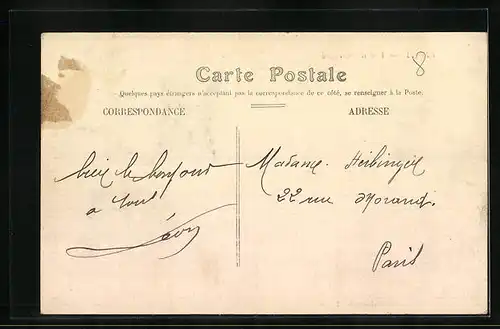 8
Carte Postale
Quelques pays étrangers n'acceptant pas la correspondance de ce côté, se renseigner à la Poste.
CORRESPONDANCE
ADRESSE
bien le bonjour
a tous
Léon
Madame
22 rue Morand.
Paris